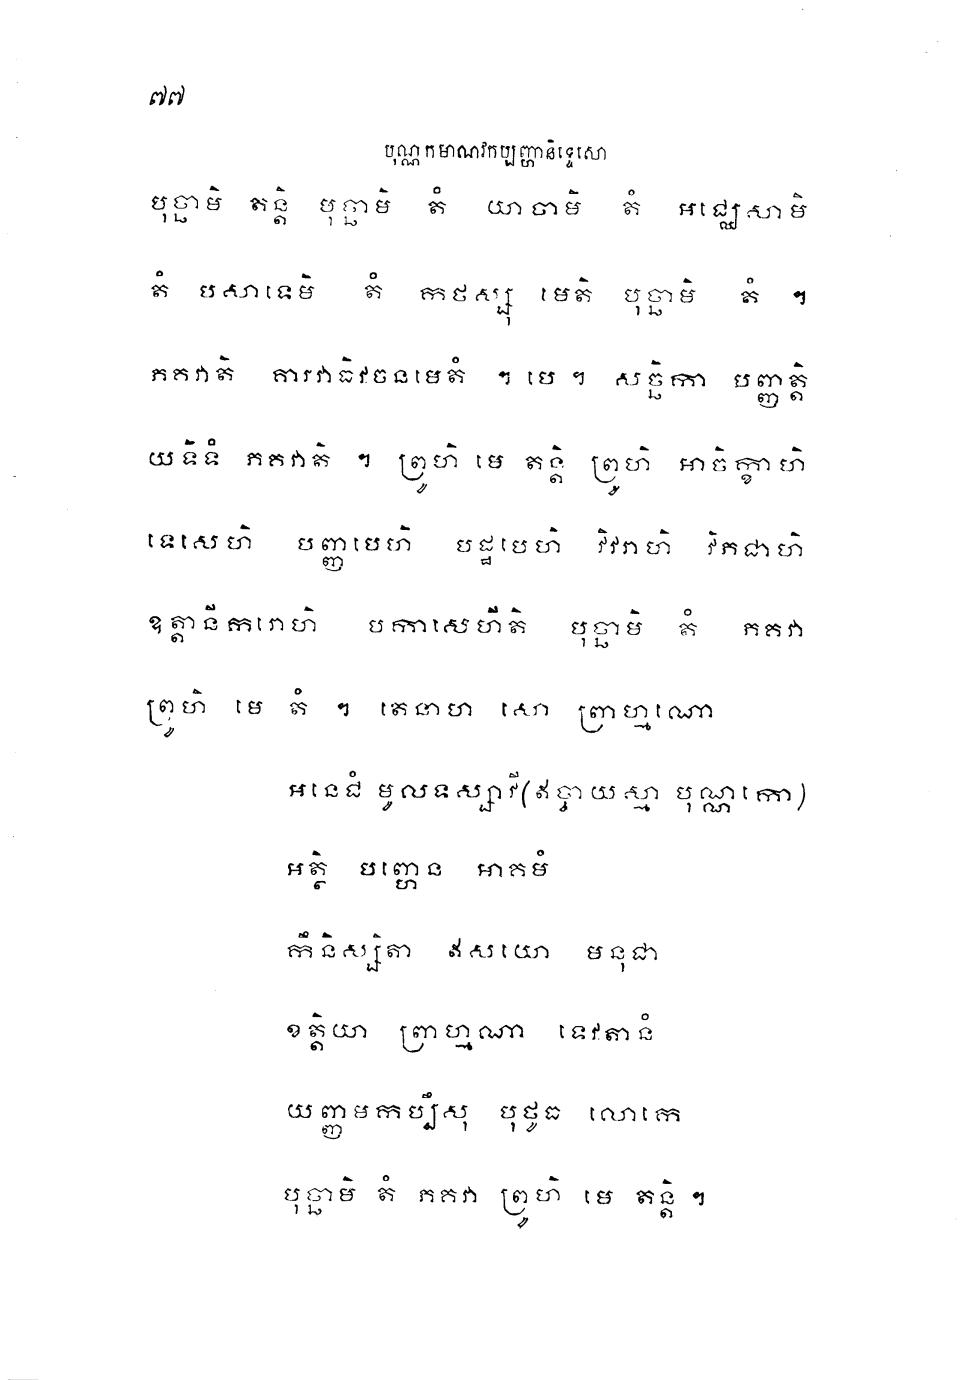 ៧៧
បុណ្ណកមាណវកប្បញ្ហានិទ្ទេសោ
បុច្ឆាមិ តន្តិ បុច្ឆាមិ តំ យាចាមិ តំ អជ្ឈេសាមិ
តំ បសាទេមិ តំ កថស្សុ មេតិ បុច្ឆាមិ តំ ។
ភគវាតិ គារវាធិវចនមេតំ ។ បេ ។ សច្ឆិកា បញ្ញត្តិ
យទិទំ ភគវាតិ ។ ព្រូហិ មេ តន្តិ ព្រូហិ អាចិក្ខាហិ
ទេសេហិ បញ្ញបេហិ បដ្ឋបេហិ វិវរាហិ វិភជាហិ
ឧត្តានីករោហិ បកាសេហីតិ បុច្ឆាមិ តំ ភគវា
ព្រូហិ មេ តំ ។ តេនាហ សោ ព្រាហ្មណោ
អនេជំ មូលទស្សាវឹ (ឥច្ចាយស្មា បុណ្ណកោ)
អត្ថិ បញ្ហេន អាគមំ
កឹនិស្សិតា ឥសយោ មនុជា
ខត្តិយា ព្រាហ្មណា ទេវតានំ
យញ្ញមកប្បឹសុ បុថូធ លោកេ
បុច្ឆាមិ តំ ភគវា ព្រូហិ មេ តន្តិ ។